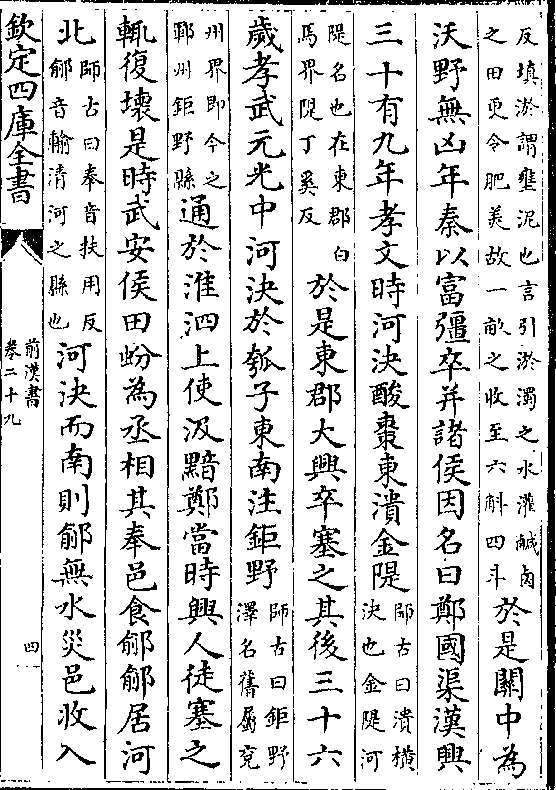 反填淤謂壅泥也言引淤濁之水灌鹹鹵
之田更令肥美故一畝之收至六斛四斗
於是關中為
沃野無凶年秦以富彊卒并諸侯因名曰鄭國渠漢興
三十有九年孝文時河決酸棗東潰金隄
師古曰潰橫
決也金隄河
隄名也在東郡白
馬界隄丁奚反
於是東郡大興卒塞之其後三十六
歲孝武元光中河決於瓠子東南注鉅野
師古曰鉅野
澤名舊屬兗
州界即今之
鄆州鉅野縣
通於淮泗上使汲黯鄭當時興人徒塞之
輒復壞是時武安侯田蚡為丞相其奉邑食鄃鄃居河
北
師古曰奉音扶用反
鄃音輸清河之縣也
河決而南則鄃無水災邑收入
欽定四庫全書
前漢書
卷二十九
四